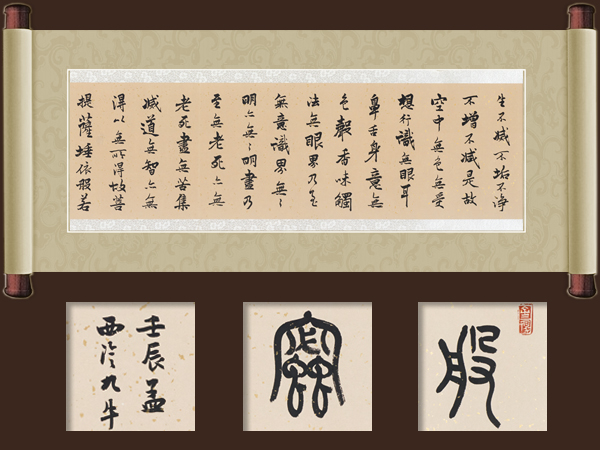 生不滅不垢不淨
不增不減是故
空中無色無受
想行識無眼耳
鼻舌身意無
色聲香味觸
法無眼界乃至
無意識界無〻
明亦無〻明盡乃
至無老死亦無
老死盡無苦集
滅道無智亦無
得以無所得故菩
提薩埵依般若
般
壬辰孟
西泠九牛